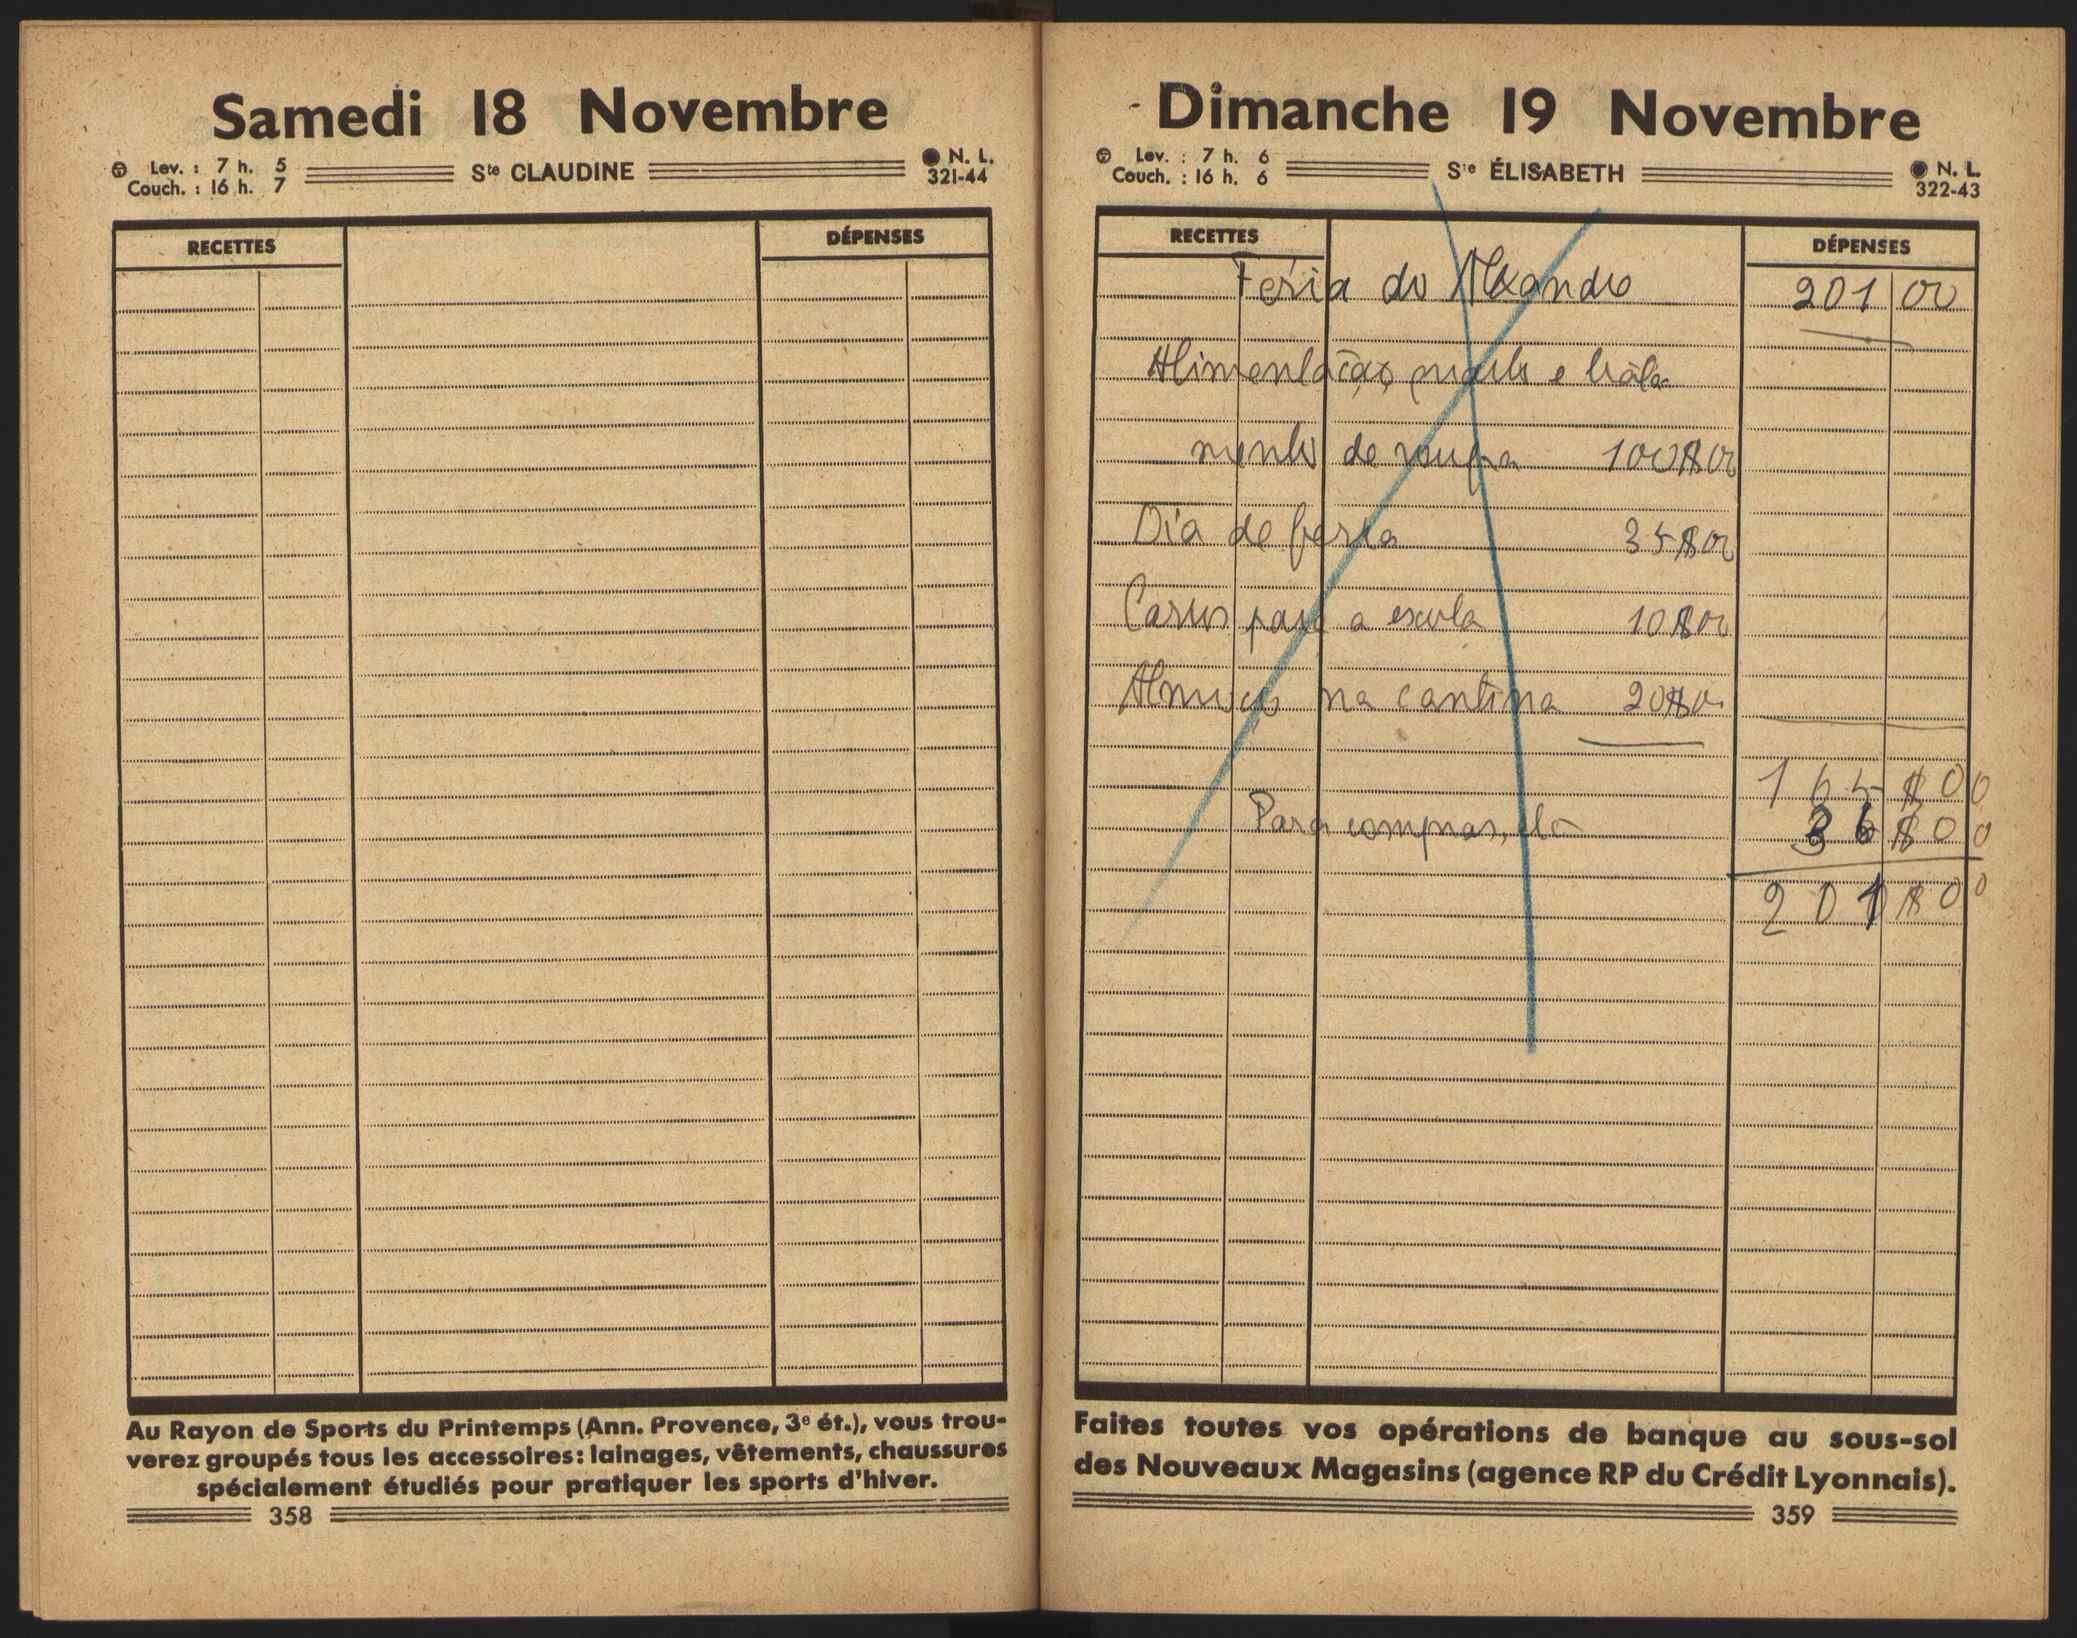 Samedi 18 Novembre
Lev. : 7 h. 5
Couch. : 16 h. 7
Ste CLAUDINE
N. L.
321-44
RECETTES
DÉPENSES
Au Rayon de Sports du Printemps (Ann. Provence, 3e ét.), vous trou-
verez groupés tous les accessoires: lainages, vêtements, chaussures
spécialement étudiés pour pratiquer les sports d'hiver.
358
Dimanche 19 Novembre
Lev. : 7 h. 6
Couch. : 16 h. 6
Ste ÉLISABETH
N. L.
322-43
RECETTES
DÉPENSES
Feria do 201 00
Alimentação, e trata
mento de roupa 100$00
Dia de festa 35$00
para a escola 10$00
Almoços na cantina 20$00
165$00
Para compras, etc 36$00
201$00
Faites toutes vos opérations de banque au sous-sol
des Nouveaux Magasins (agence RP du Crédit Lyonnais).
359